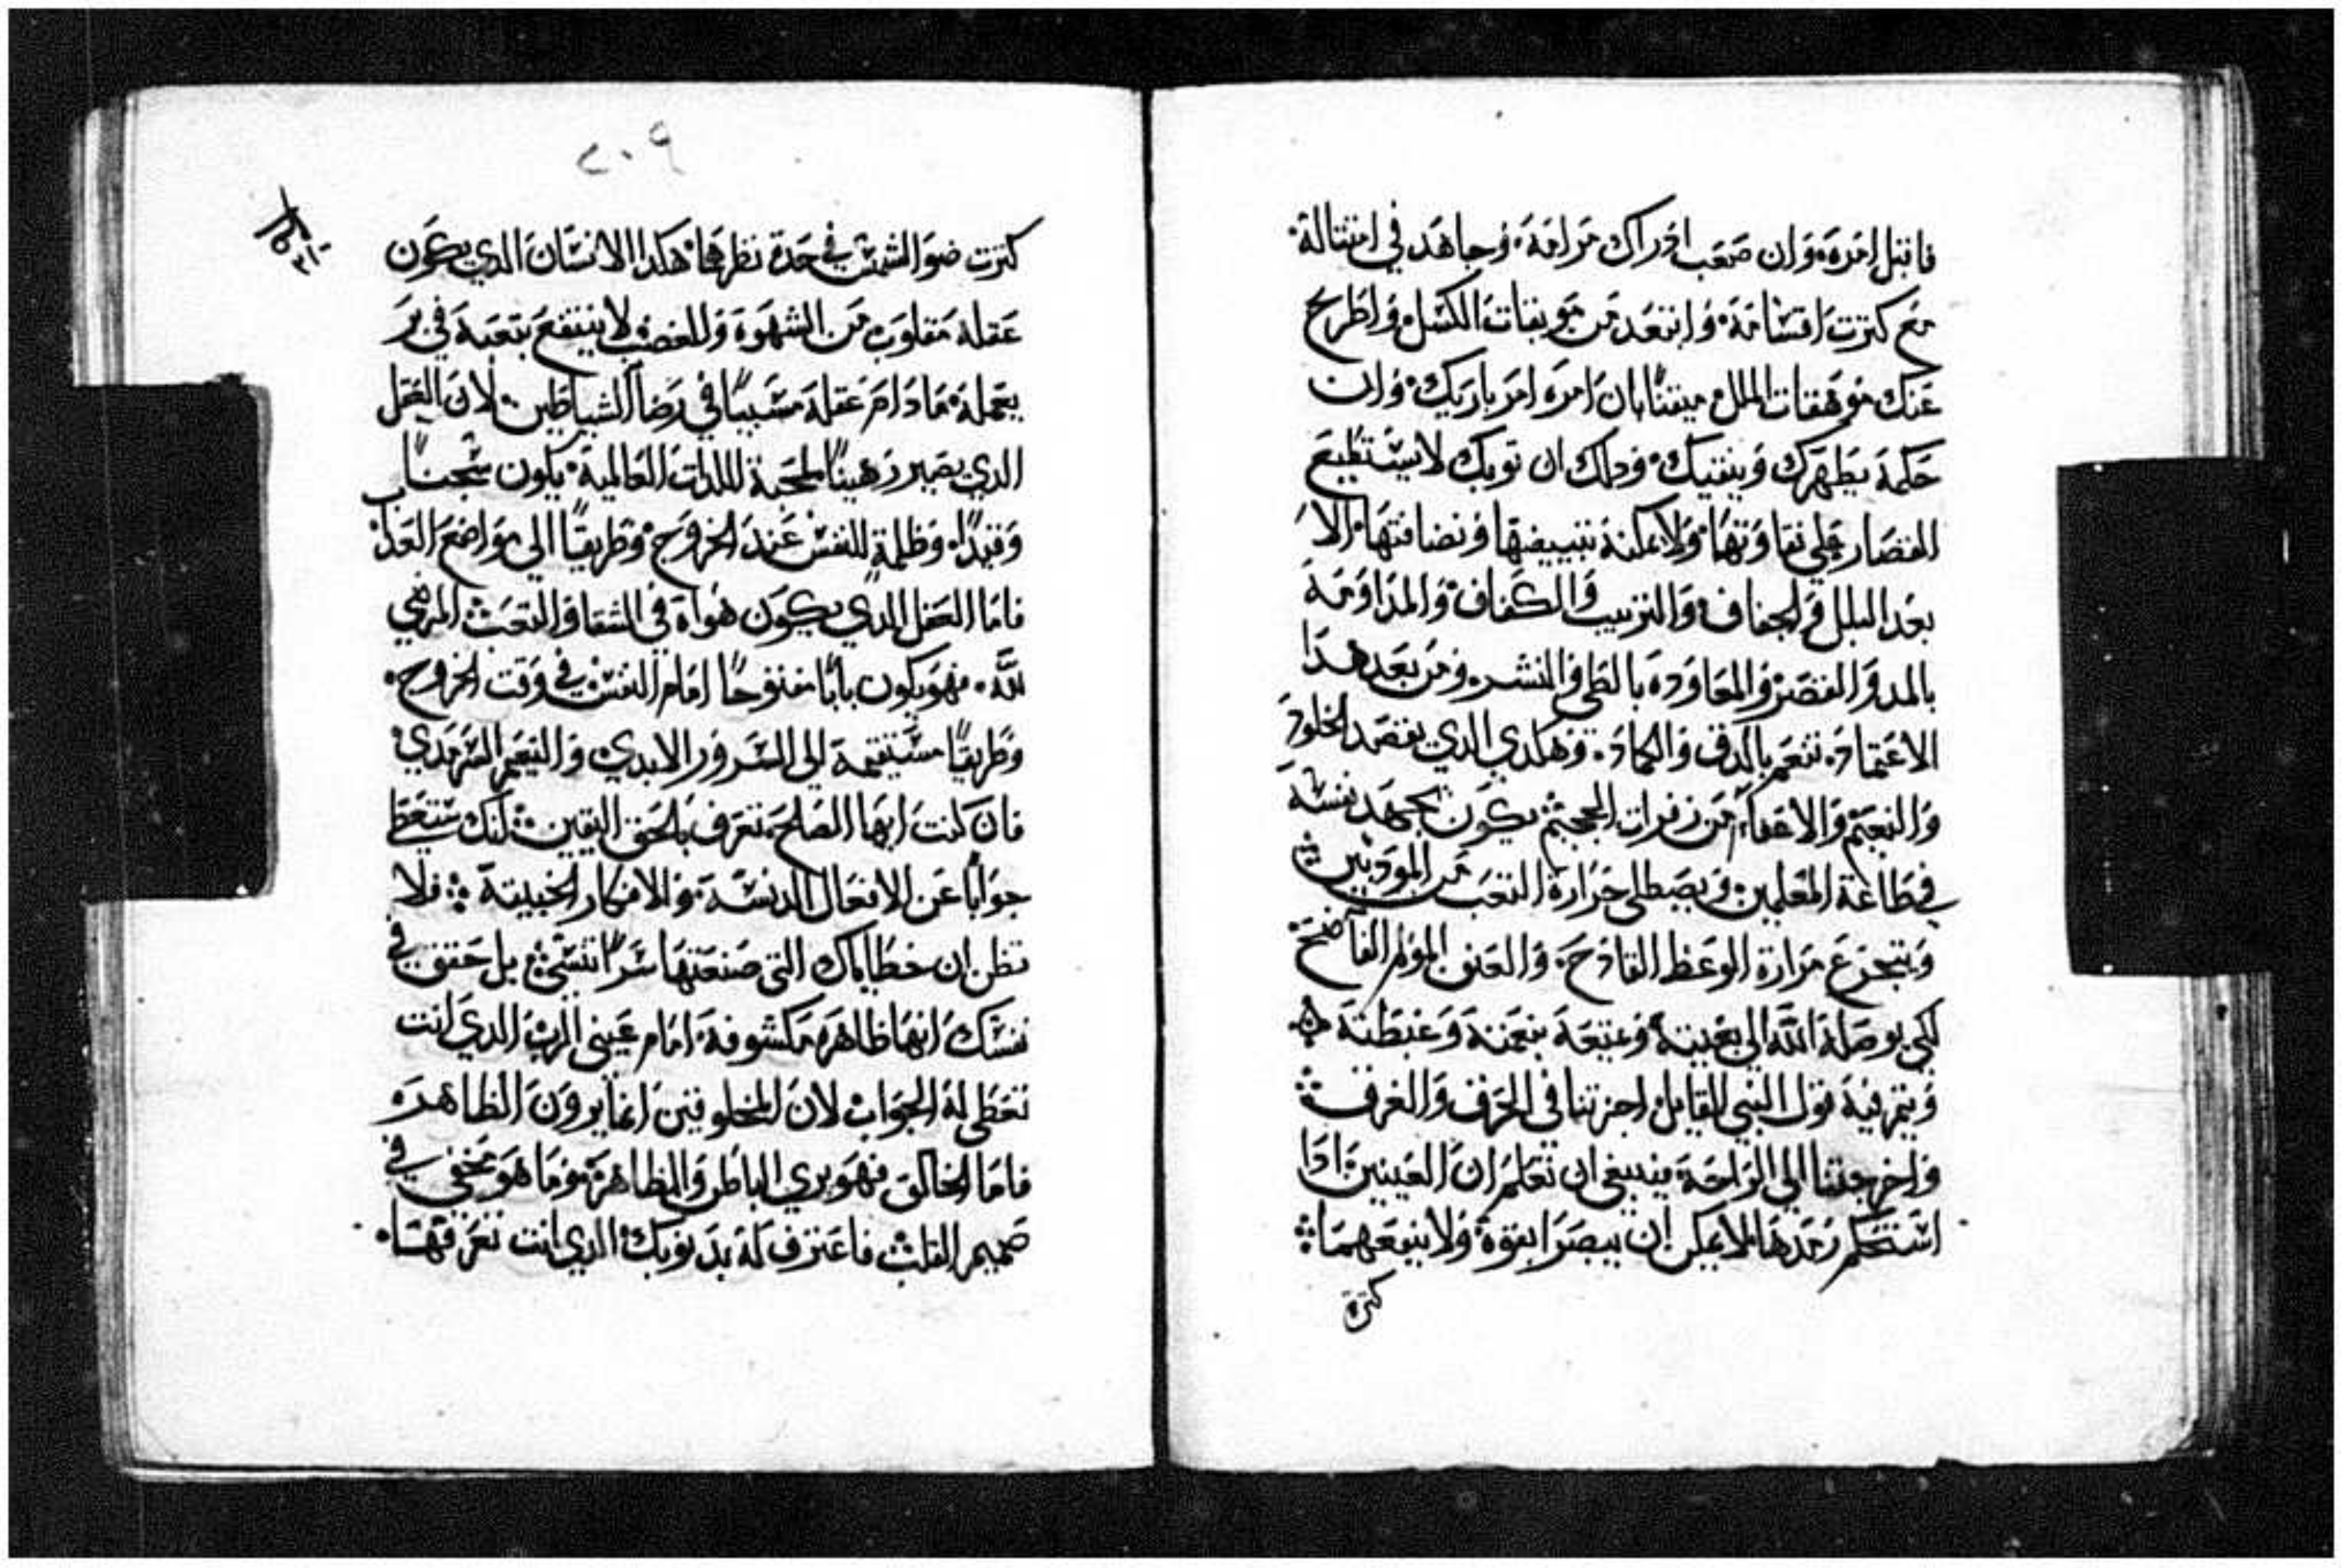 فاقبل امره، وان صعب ادراك مرامه، وجاهد في امتثاله.
مع كترت اقسامه، وابتعد من موبقات الكسل، واطرح
عنك موهقات الملل ميقنًا بان امره امر باريك، وان
حكمه يطهرك وينقيك، ودلك ان توبك لا يستطيع
القصار علي نقاوتها، ولا يمكنه تبييضها ونضافتها، الا
بعد البلل والجفاف، والترتيب والكفاف، والمداومه
بالمد والقصر، والمعاوده بالطي والنشر، ومن بعد هدا
الاعتماد، تنعم بالدق والكماد، وهكدي الدي يقصد الخلود
والنعيم والاعفاء من زفرات الجحيم يكون يجهد نفسه
في طاعة المعلمين، ويصطلى حرارة التعب من المودبين
ويتجرع مرارة الوعظ القادح، والعنف المولم الفاضح،
لكي يوصله الله الي بغيته، وعتعه بنعمته وغبطته
ويتم فيه قول النبي القايل اجزتنا في الحرق والغرق
واخرجتنا الي الراحه ينبغي ان تعلم ان العينين ادا
استحكم رمدها لا يمكن ان يبصرا بقوة ولا ينفعهما
كترة
٢٠٩
كترت ضو الشمس في حدة نظرها، هكدا الانسان الدي يكون
عقله مغلوب من الشهوة والغضب لا ينتفع بتعبه في بر
يعمله، مادام عقله مسبيًا في رضا الشياطين، لان العقل
الدي يصير رهينًا لمحبة اللدات العالمية، يكون سجنًا
وقيدًا، وظلمة للنفس عند الخروج، وطريقًا الي مواضع العداب
فاما العقل الدي يكون هواه في الشقا والتعب المرضي
لله، فهو يكون بابًا مفتوحًا امام النفس في وقت الخروج.
وطريقًا مستقيمة الي السرور الابدي، والنعيم السرمدي
فان كنت ايها الصالح، تعرف بالحق اليقين انك ستعطي
جوابًا عن الافعال الدنسه، والافكار الخبيته فلا
تظن ان خطاياك التي صنعتها سرًا تنسي بل حقق في
نفسك انها ظاهره مكشوفة، امام عيني الرب الدي انت
تعطي له الجواب لان المخلوقين انما يرون الظاهره
فاما الخالق فهو يري الباطن والظاهرة، وما هو مخفي في
صميم القلب، فاعترف له بدنوبك الدي انت تعرفها.